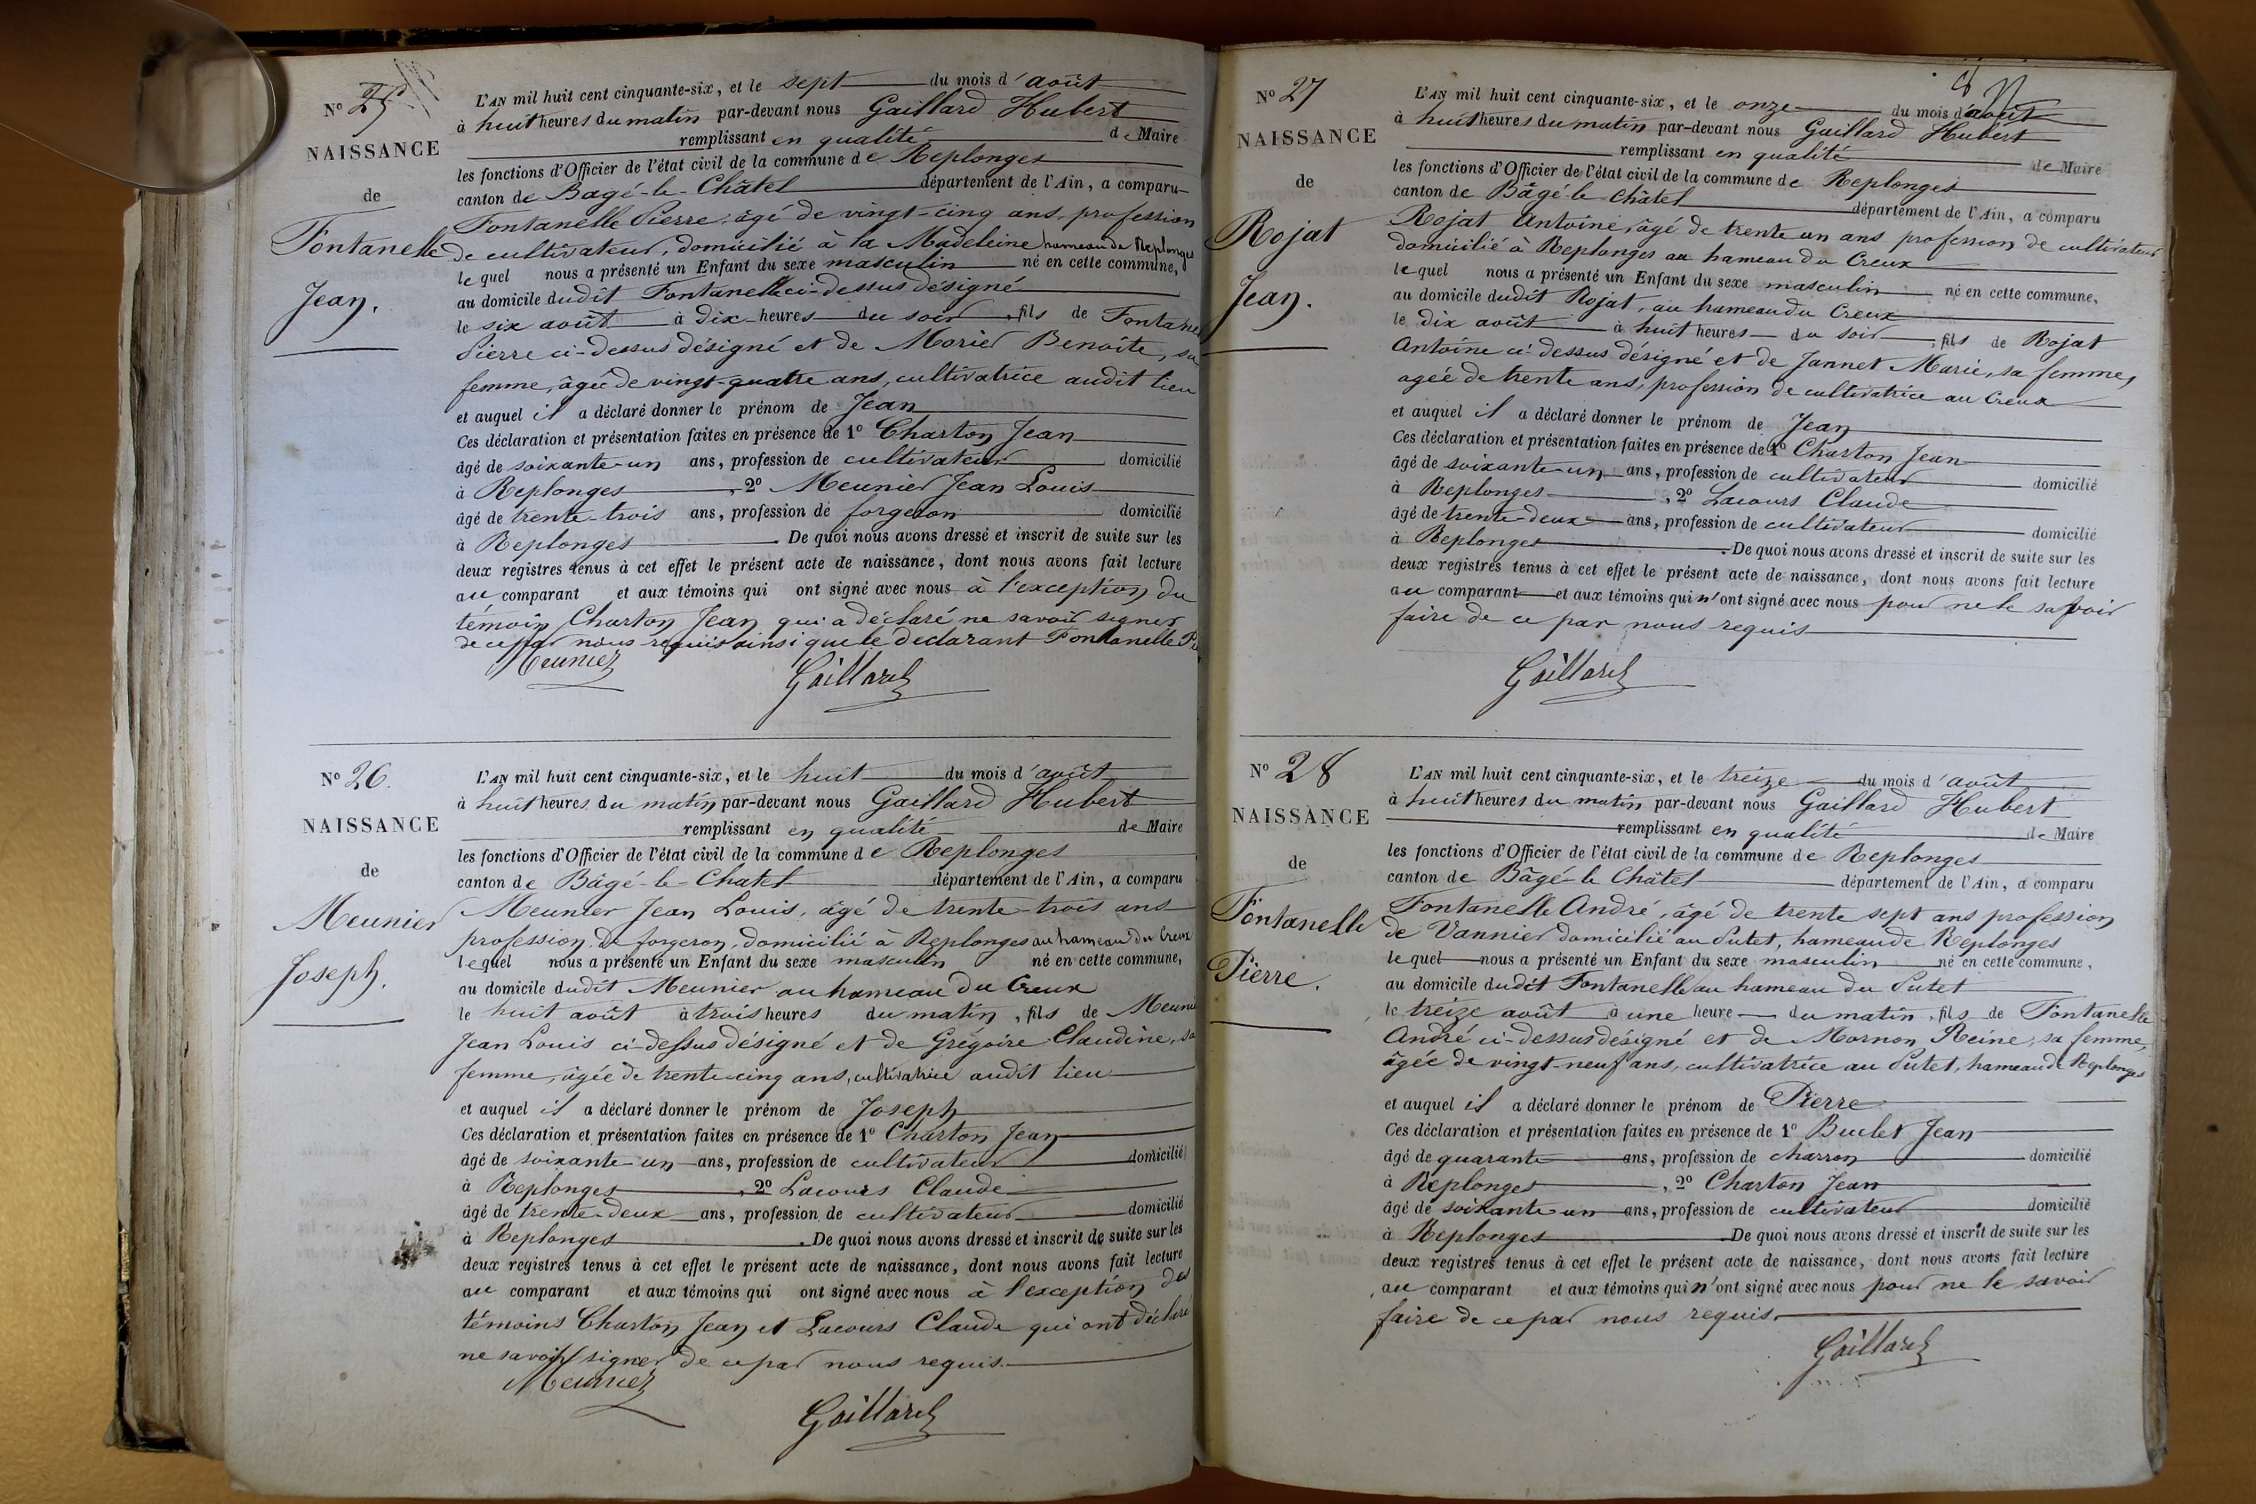 N° 25
NAISSANCE
de
Fontanelle
Jean.
L'AN mil huit cent cinquante-six, et le sept du mois d'août
à huit heures du matin par-devant nous Gaillard Hubert
remplissant en qualité de Maire
les fonctions d'Officier de l'état civil de la commune de Replonges
canton de Bagé-le-Châtel département de l'Ain, a comparu
Fontanelle Pierre, âgé de vingt-cinq ans, profession
de cultivateur, domicilié à la Madeleine hameau de Replonges
lequel nous a présenté un Enfant du sexe masculin né en cette commune,
au domicile dudit Fontanelle ci-dessus désigné
le six août à dix heures du soir, fils de Fontane
Pierre ci-dessus désigné et de Morier Benoîte, sa
femme, âgée de vingt-quatre ans, cultivatrice audit lieu
et auquel il a déclaré donner le prénom de Jean
Ces déclaration et présentation faites en présence de 1° Charton Jean
âgé de soixante-un ans, profession de cultivateur domicilié
à Replonges, 2° Meunier Jean Louis
âgé de trente-trois ans, profession de forgeron domicilié
à Replonges. De quoi nous avons dressé et inscrit de suite sur les
deux registres tenus à cet effet le présent acte de naissance, dont nous avons fait lecture
au comparant et aux témoins qui ont signé avec nous à l'exception du
témoin Charton Jean qui a déclaré ne savoir signer
de ce par nous requis ainsi que le déclarant Fontanelle
Meunier Gaillard
N° 26.
NAISSANCE
de
Meunier
Joseph.
L'AN mil huit cent cinquante-six, et le huit du mois d'août
à huit heures du matin par-devant nous Gaillard Hubert
remplissant en qualité de Maire
les fonctions d'Officier de l'état civil de la commune de Replonges
canton de Bâgé-le-Chatel département de l'Ain, a comparu
Meunier Jean Louis, âgé de trente-trois ans
profession de forgeron, domicilié à Replonges au hameau du Creux
lequel nous a présenté un Enfant du sexe masculin né en cette commune,
au domicile dudit Meunier au hameau du Creux
le huit août à trois heures du matin, fils de Meunier
Jean Louis ci-dessus désigné et de Grégoire Claudine, sa
femme, âgée de trente-cinq ans, cultivatrice audit lieu
et auquel il a déclaré donner le prénom de Joseph
Ces déclaration et présentation faites en présence de 1° Charton Jean
âgé de soixante-un ans, profession de cultivateur domicilié
à Replonges, 2° Lacours Claude
âgé de trente-deux ans, profession de cultivateur domicilié
à Replonges. De quoi nous avons dressé et inscrit de suite sur les
deux registres tenus à cet effet le présent acte de naissance, dont nous avons fait lecture
au comparant et aux témoins qui ont signé avec nous à l'exception des
témoins Charton Jean et Lacours Claude qui ont déclaré
ne savoir signer de ce par nous requis.
Meunier Gaillard
N° 27
NAISSANCE
de
Rojat
Jean.
L'AN mil huit cent cinquante-six, et le onze du mois d'août
à huit heures du matin par-devant nous Gaillard Hubert
remplissant en qualité de Maire
les fonctions d'Officier de l'état civil de la commune de Replonges
canton de Bâgé-le-Châtel département de l'Ain, a comparu
Rojat Antoine, âgé de trente un ans profession de cultivateur
domicilié à Replonges au hameau du Creux
lequel nous a présenté un Enfant du sexe masculin né en cette commune,
au domicile dudit Rojat, au hameau du Creux
le dix août à huit heures du soir, fils de Rojat
Antoine ci-dessus désigné et de Jannet Marie, sa femme,
agée de trente ans, profession de cultivatrice au Creux
et auquel il a déclaré donner le prénom de Jean
Ces déclaration et présentation faites en présence de 1° Charton Jean
âgé de soixante-un ans, profession de cultivateur domicilié
à Replonges, 2° Lacours Claude
âgé de trente-deux ans, profession de cultivateur domicilié
à Replonges. De quoi nous avons dressé et inscrit de suite sur les
deux registres tenus à cet effet le présent acte de naissance, dont nous avons fait lecture
au comparant et aux témoins qui n'ont signé avec nous pour ne le savoir
faire de ce par nous requis
Gaillard
N° 28
NAISSANCE
de
Fontanelle
Pierre.
L'AN mil huit cent cinquante-six, et le treize du mois d'août
à huit heures du matin par-devant nous Gaillard Hubert
remplissant en qualité de Maire
les fonctions d'Officier de l'état civil de la commune de Replonges
canton de Bâgé-le Châtel département de l'Ain, a comparu
Fontanelle André, âgé de trente sept ans profession
de Vannier domicilié au Putet, hameau de Replonges
lequel nous a présenté un Enfant du sexe masculin né en cette commune,
au domicile dudit Fontanelle au hameau du Putet
le treize août à une heure du matin, fils de Fontanelle
André ci-dessus désigné et de Mornon Reine, sa femme,
âgée de vingt-neuf ans, cultivatrice au Putet, hameau de Replonges
et auquel il a déclaré donner le prénom de Pierre
Ces déclaration et présentation faites en présence de 1° Buclet Jean
âgé de quarante ans, profession de charron domicilié
à Replonges, 2° Charton Jean
âgé de soixante-un ans, profession de cultivateur domicilié
à Replonges. De quoi nous avons dressé et inscrit de suite sur les
deux registres tenus à cet effet le présent acte de naissance, dont nous avons fait lecture
au comparant et aux témoins qui n'ont signé avec nous pour ne le savoir
faire de ce par nous requis.
Gaillard